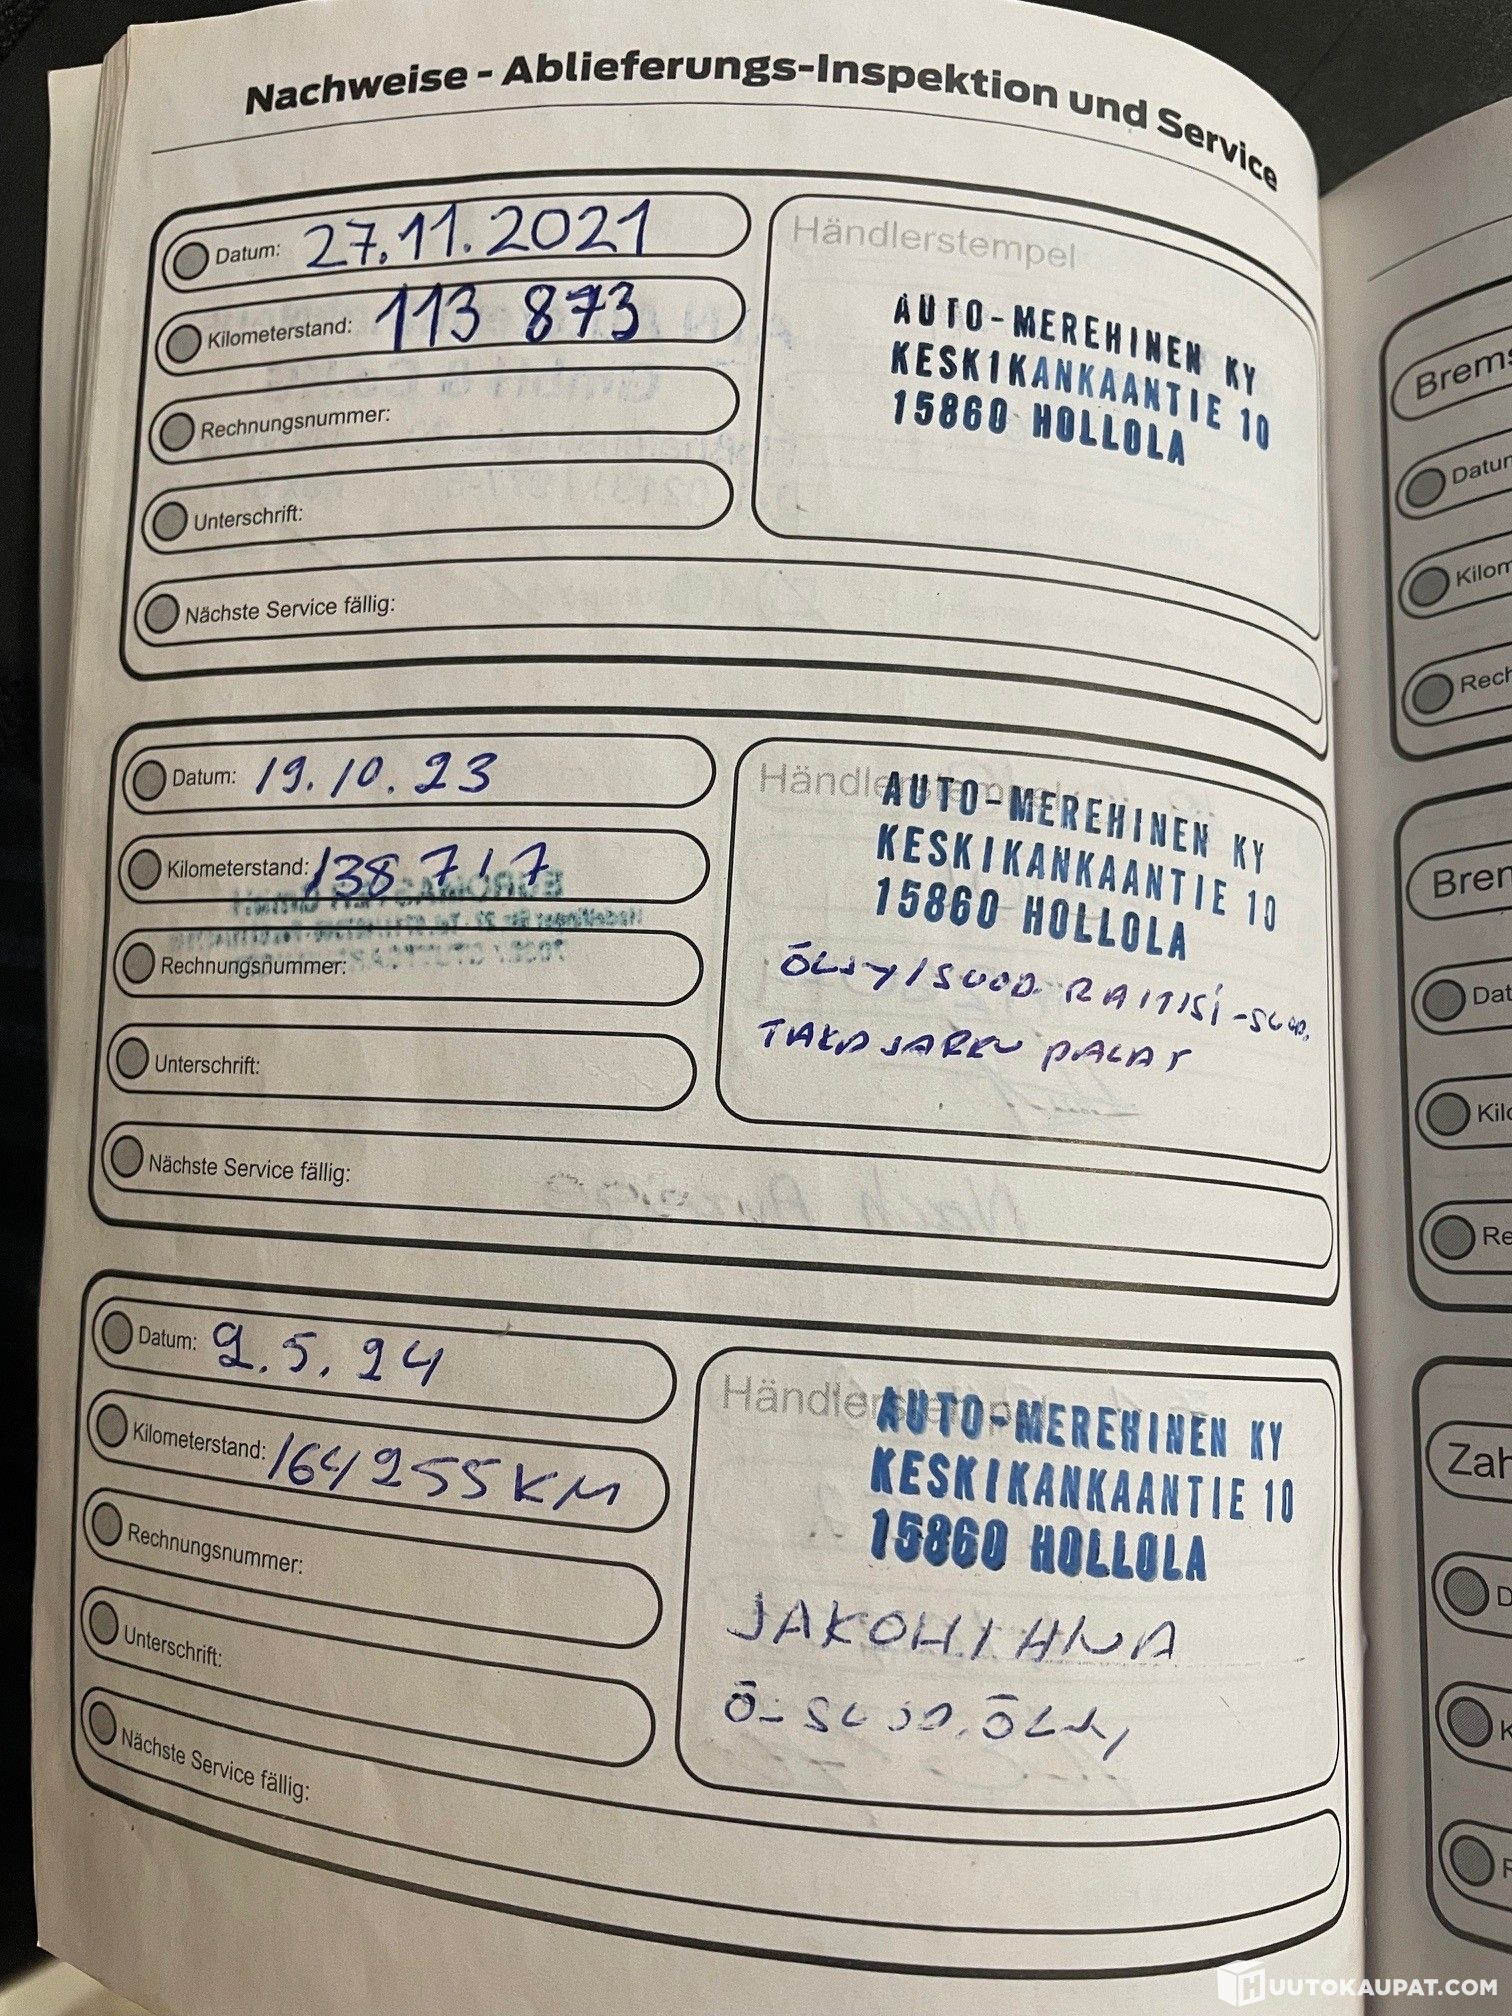 Nachweise - Ablieferungs-Inspektion und Service
Datum: 27.11.2021
Kilometerstand: 113 873
Rechnungsnummer:
Unterschrift:
Nächste Service fällig:
Händlerstempel
AUTO-MEREHINEN KY
KESKIKANKAANTIE 10
15860 HOLLOLA
Datum: 19.10.23
Kilometerstand: 138 717
Rechnungsnummer:
Unterschrift:
Nächste Service fällig:
Händlerstempel
AUTO-MEREHINEN KY
KESKIKANKAANTIE 10
15860 HOLLOLA
ÖLJY/SUOD. RAITISI-SUOD.
TAKAJARRU PALAT
Datum: 2.5.24
Kilometerstand: 164 255 KM
Rechnungsnummer:
Unterschrift:
Nächste Service fällig:
Händlerstempel
AUTO-MEREHINEN KY
KESKIKANKAANTIE 10
15860 HOLLOLA
JAKOHIHNA
Ö-SUOD. ÖLJY
Brems
Datum
Kilom
Rech
Brem
Dat
Kilo
Re
Zah
D
K
R
HUUTOKAUPAT.COM